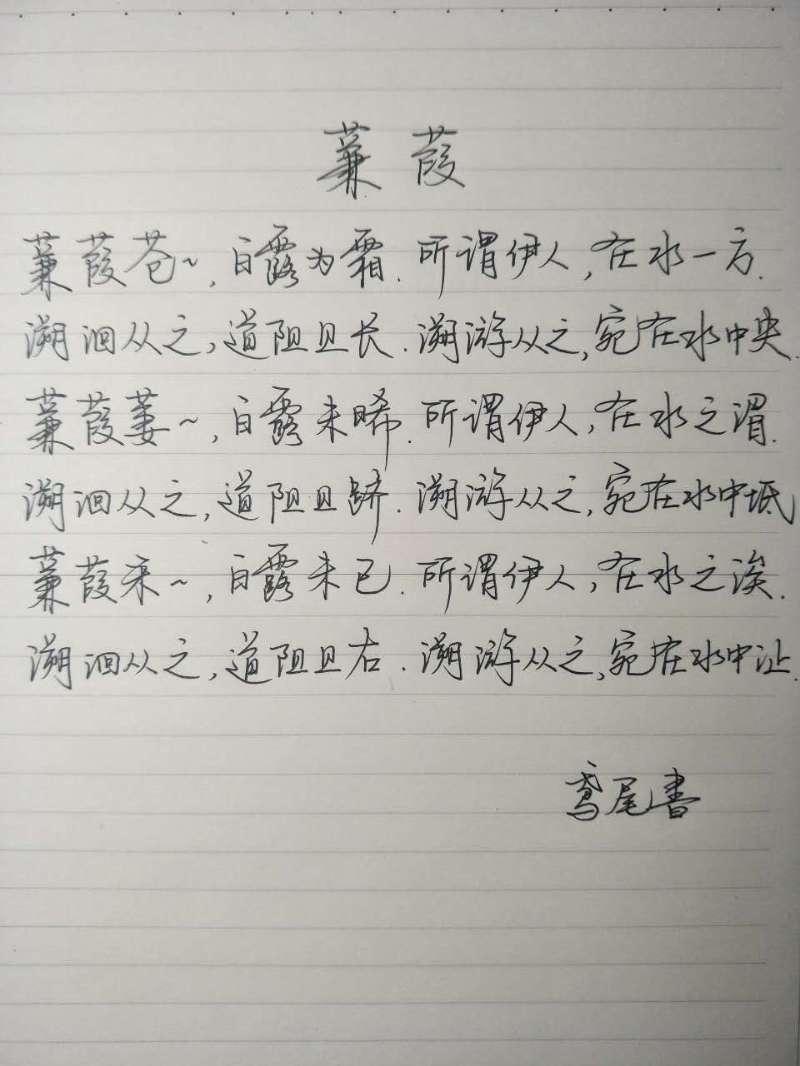 蒹葭
蒹葭苍~,白露为霜.所谓伊人,在水一方.
溯洄从之,道阻且长.溯游从之,宛在水中央.
蒹葭萋~,白露未晞.所谓伊人,在水之湄.
溯洄从之,道阻且跻.溯游从之,宛在水中坻
蒹葭采~,白露未已.所谓伊人,在水之涘.
溯洄从之,道阻且右.溯游从之,宛在水中沚.
鸢尾書